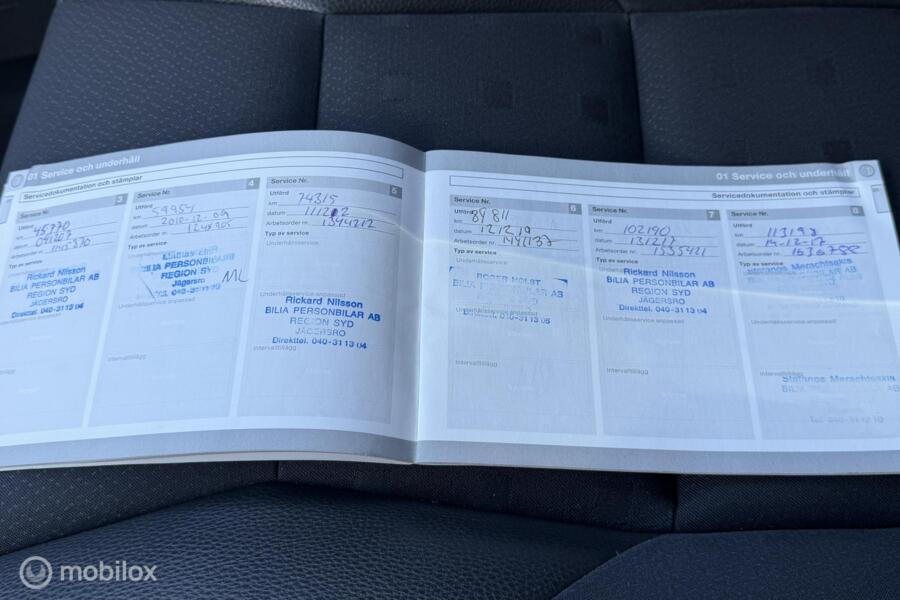 01 Service och underhåll
Servicedokumentation och stämplar
Service Nr. 3
45770
Typ av service
Rickard Nilsson
BILIA PERSONBILAR AB
REGION SYD
JÄGERSRO
Direkttel. 040-31 13 04
Underhållsservice anpassad
Intervalltillägg
Service Nr. 4
Utförd
km
datum 2010-12-09
Arbetsorder nr.
Typ av service
BILIA PERSONBILAR AB
REGION SYD
Jägersro
ML
Intervalltillägg
Service Nr. 5
Utförd
km 74315
datum 111202
Arbetsorder nr. 1344212
Typ av service
Underhållsservice
Underhållsservice anpassad
Rickard Nilsson
BILIA PERSONBILAR AB
REGION SYD
JÄGERSRO
Direkttel. 040-31 13 04
Intervalltillägg
01 Service och underhåll
Servicedokumentation och stämplar
Service Nr. 6
Utförd
km 89811
datum 121210
Arbetsorder nr. 1441137
Typ av service
Underhållsservice
ROGER HOLST
BILIA PERSONBILAR AB
Underhållsservice anpassad
Intervalltillägg
Service Nr. 7
Utförd
km 102190
datum 131217
Arbetsorder nr. 1535421
Typ av service
Rickard Nilsson
BILIA PERSONBILAR AB
REGION SYD
JÄGERSRO
Direkttel. 040-31 13 04
Underhållsservice anpassad
Intervalltillägg
Service Nr. 8
Utförd
km 113193
datum 14-12-17
Arbetsorder nr.
Typ av service
Stefanos Merachtsakis
Underhållsservice anpassad
Intervalltillägg
Stefanos Merachtsakis
mobilox